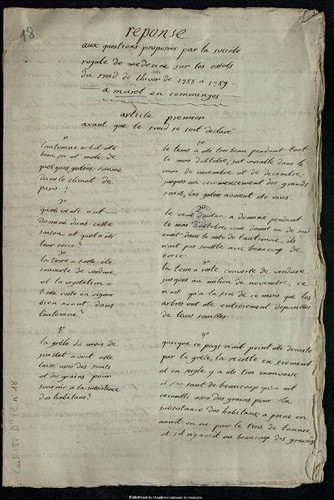 18
reponse
aux questions proposées par la societé
royale de medecine sur les effets
du froid de l'hiver de 1788 a 1789
a muret en comminges
article premier
avant que le froid se soit declaré
1º
l'automne a t-il eté
beau, sec et mele de
quelques gelées, comme
dans le climat de
paris?
le tems a eté tres beau pendant tout
le mois d'octobre, fut variable dans le
mois de novembre et de decembre,
jusques au commencement des grands
froids, les gelées
2º
quel vent a
dominé dans cette
saison, et quel a eté
leur force?
le vent a dominé pendant
le mois d'octobre,
dans le reste de l'automne, ils
n'ont pas soufflé avec beaucoup de
force
3º
la terre a t-elle eté
couverte de verdure,
et la vegetation a
t-elle resté en vigueur
bien avant dans
l'automne?
la terre a resté couverte de verdure
jusques au milieu de novembre, ce
n'est qu'a la fin de ce mois que les
arbres ont eté entierement depouillés
de leurs feuilles.
4º
la grêle du mois de
juillet avoit elle
laissé assez des fruits
et des grains pour
fournir a la subsistance
des habitans?
quoique ce pays n'ait point eté devasté
par la grêle, la recolte en froment
et en seigle y a eté tres mauvaise
et
recueilli assez des grains pour la
subsistance des habitans, a peine en
avoit on eu pour le tiers de l'année,
et s'il n'y avoit eu beaucoup des grains
Bibliothèque de l'Académie nationale de médecine